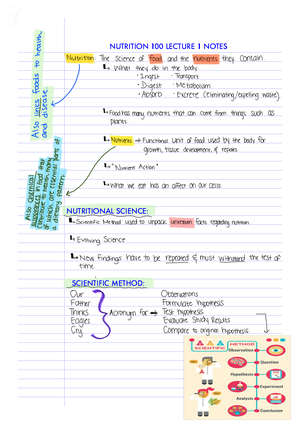 NUTRITION 100 LECTURE 1 NOTES
Nutrition: The Science of food and the nutrients they contain
What they do in the body:
· Ingest · Transport
· Digest · Metabolism
· Absorb · Excrete (eliminating/expelling waste)
Food has many nutrients that can come from things such as
plants
Nutrients → Functional Unit of food used by the body for
growth, tissue development, & repairs
"Nutrient Action"
What we eat has an affect on our cells
Also links foods to health,
and disease.
Also chemical
substances in food that
contribute to health, many
of which are essential parts of
a dietary pattern.
NUTRITIONAL SCIENCE:
Scientific Method used to unpack unknown facts regarding nutrition
Evolving Science
New findings have to be repeated & must withstand the test of
time.
SCIENTIFIC METHOD:
Our
Father
Thinks
Eagles
Cry
Acronym for →
Observations
Formulate hypothesis
Test hypothesis
Evaluate Study Results
Compare to original hypothesis
SCIENTIFIC METHOD
Observation
Question
Hypothesis
Experiment
Analysis
Conclusion